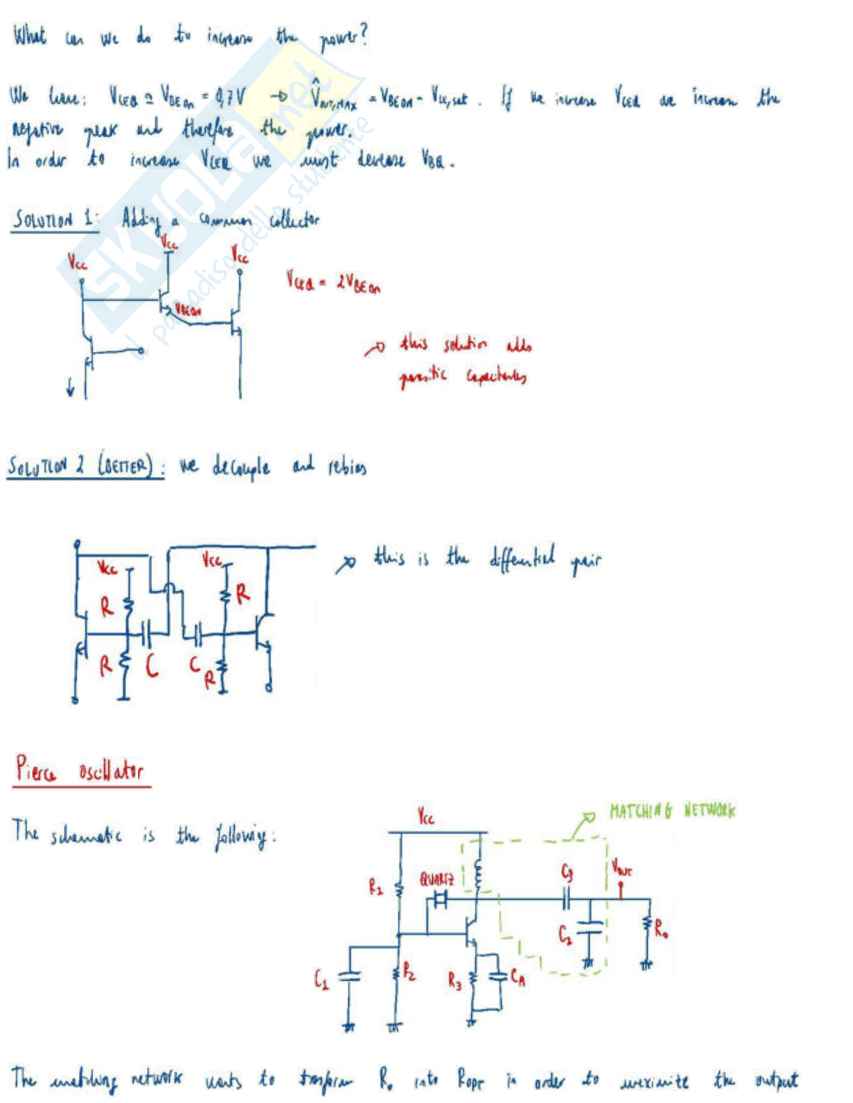 What can we do to increase the power?
We have: VCEQ ≃ VBEon = 0,7V → V̂out,MAX = VBEon - VCE,sat. If we increase VCEQ we increase the
negative peak and therefore the power.
In order to increase VCEQ we must decrease VBQ.
SOLUTION 1: Adding a common collector
VCC
VCC
VCC
VBEon
VCEQ = 2VBEon
this solution adds
parasitic capacitances
SKUOLA.net
il paradiso dello studente
SOLUTION 2 (BETTER): we decouple and rebias
VCC
VCC
R
R
R
C
C
R
this is the differential pair
Pierce oscillator
The schematic is the following:
VCC
MATCHING NETWORK
R1
QUARTZ
C3
Vout
C2
R0
C1
R2
R3
CA
The matching network wants to transform R0 into ROPT in order to maximize the output